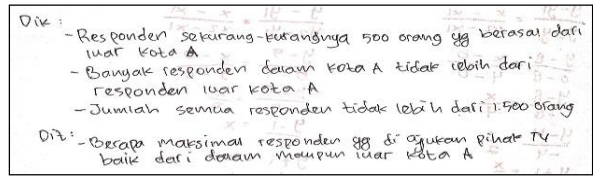 Dik :
- Responden sekurang-kurangnya 500 orang yg berasal dari
luar kota A
- Banyak responden dalam kota A tidak lebih dari
responden luar kota A
- Jumlah semua responden tidak lebih dari 1.500 orang
Dit: - Berapa maksimal responden yg di ajukan pihak TV
baik dari dalam maupun luar kota A